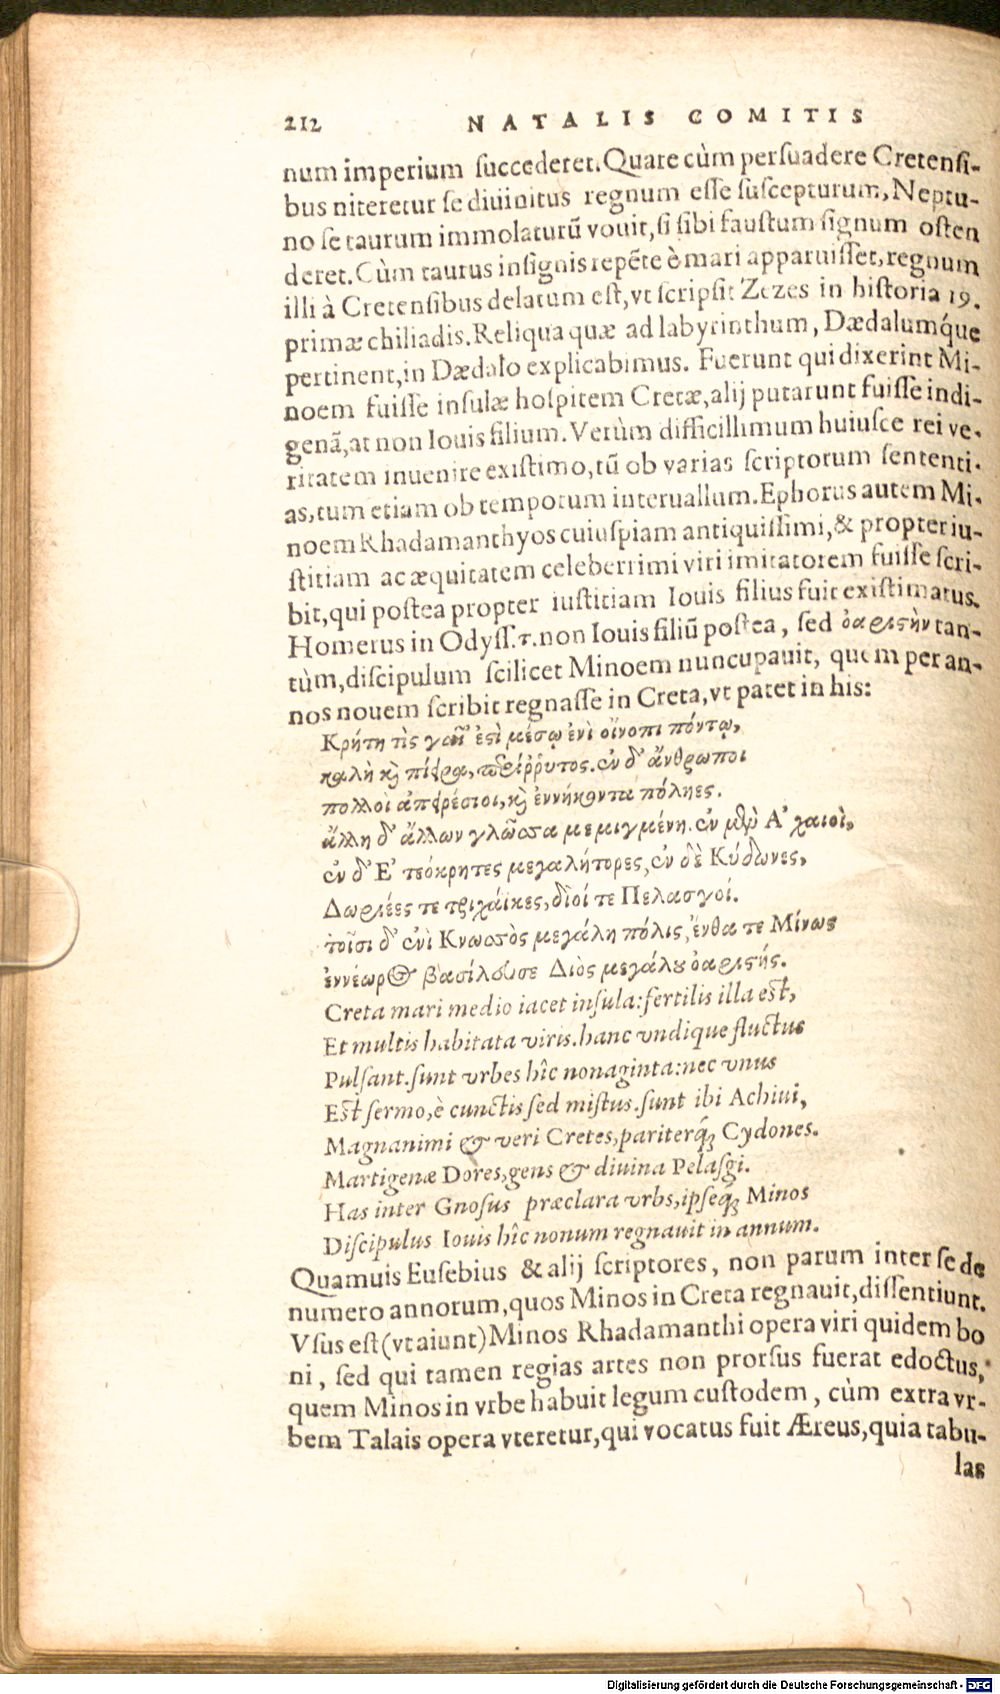 212 NATALIS COMITIS
num imperium succederet. Quare cùm persuadere Cretensi-
bus niteretur se diuinitus regnum esse suscepturum, Neptu-
no se taurum immolaturũ vouit, si sibi faustum signum osten
deret. Cùm taurus insignis repẽte è mari apparuisset, regnum
illi à Cretensibus delatum est, vt scripsit Zezes in historia 19.
primæ chiliadis. Reliqua quæ ad labyrinthum, Dædalumq́ue
pertinent, in Dædalo explicabimus. Fuerunt qui dixerint Mi-
noem fuisse insulæ hospitem Cretæ, alij putarunt fuisse indi-
genã, at non Iouis filium. Verùm difficillimum huiusce rei ve-
ritatem inuenire existimo, tũ ob varias scriptorum sententi-
as, tum etiam ob temporum interuallum. Ephorus autem Mi-
noem Rhadamanthyos cuiuspiam antiquissimi, & propter iu-
stitiam ac æquitatem celeberrimi viri imitatorem fuisse scri-
bit, qui postea propter iustitiam Iouis filius fuit existimatus.
Homerus in Odyss. τ. non Iouis filiũ postea, sed ὀαριςὴν tan-
tùm, discipulum scilicet Minoem nuncupauit, quem per an-
nos nouem scribit regnasse in Creta, vt patet in his:
Κρήτη τὶς γαῖ' ἐςὶ μέσῳ ἐνὶ οἴνοπι πόντῳ,
καλὴ κὶ πίειρα, περίῤῥυτος. ἐν δ' ἄνθρωποι
πολλοὶ ἀπειρέσιοι, κὶ ἐννήκοντα πόληες.
ἄλλη δ' ἄλλων γλῶσσα μεμιγμένη. ἐν μὲν Ἀχαιοὶ,
ἐν δ' Ἐτεόκρητες μεγαλήτορες, ἐν δὲ Κύδωνες,
Δωριέες τε τριχάϊκες, δῖοί τε Πελασγοί.
τοῖσι δ' ἐνὶ Κνωσσὸς μεγάλη πόλις, ἔνθα τε Μίνως
ἐννέωρος βασίλευσε Διὸς μεγάλου ὀαριςής.
Creta mari medio iacet insula: fertilis illa est,
Et multis habitata viris. hanc vndique fluctus
Pulsant. sunt vrbes hîc nonaginta: nec vnus
Est sermo, è cunctis sed mistus. sunt ibi Achiui,
Magnanimi & veri Cretes, pariterq́; Cydones.
Martigenæ Dores, gens & diuina Pelasgi.
Has inter Gnosus præclara vrbs, ipseq́; Minos
Discipulus Iouis hîc nonum regnauit in annum.
Quamuis Eusebius & alij scriptores, non parum inter se de
numero annorum, quos Minos in Creta regnauit, dissentiunt.
Vsus est (vt aiunt) Minos Rhadamanthi opera viri quidem bo
ni, sed qui tamen regias artes non prorsus fuerat edoctus,
quem Minos in vrbe habuit legum custodem, cùm extra vr-
bem Talais opera vteretur, qui vocatus fuit Æreus, quia tabu-
las
Digitalisierung gefördert durch die Deutsche Forschungsgemeinschaft - DFG